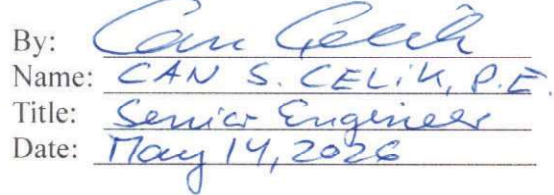 By: Can Celik
Name: CAN S. CELIK, P.E.
Title: Senior Engineer
Date: May 14, 2026